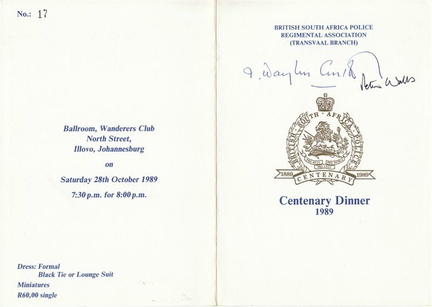 No.: 17
Ballroom, Wanderers Club
North Street,
Illovo, Johannesburg
on
Saturday 28th October 1989
7:30 p.m. for 8:00 p.m.
Dress: Formal
Black Tie or Lounge Suit
Miniatures
R60,00 single
BRITISH SOUTH AFRICA POLICE
REGIMENTAL ASSOCIATION
(TRANSVAAL BRANCH)
Peter Walls
BRITISH · SOUTH · AFRICA · POLICE
1889 1989
CENTENARY
Centenary Dinner
1989